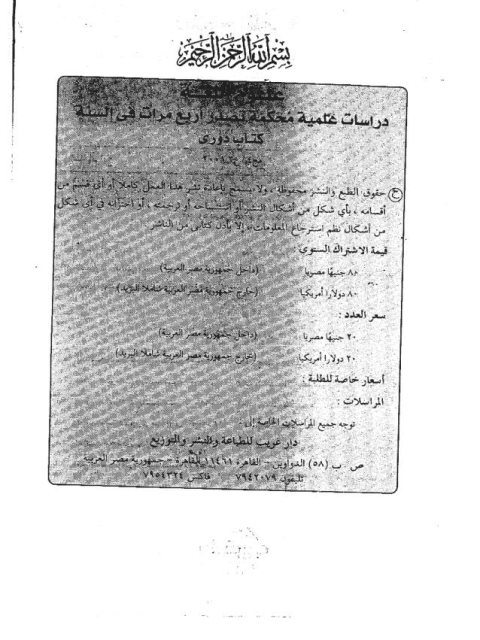 بسم الله الرحمن الرحيم
علوم اللغة
دراسات علمية محكمة تصدر أربع مرات في السنة
كتاب دوري
حقوق الطبع والنشر محفوظة ، ولا يسمح بإعادة نشر هذا العمل كاملا أو أي قسم من
أقسامه ، بأي شكل من أشكال النشر أو استنساخه أو ترجمته ، أو اختزانه في أي شكل
من أشكال نظم استرجاع المعلومات ، إلا بإذن كتابي من الناشر
قيمة الاشتراك السنوي :
٨٠ جنيها مصريا (داخل جمهورية مصر العربية)
٨٠ دولارا أمريكيا (خارج جمهورية مصر العربية شاملا البريد)
سعر العدد :
٢٠ جنيها مصريا (داخل جمهورية مصر العربية)
٢٠ دولارا أمريكيا (خارج جمهورية مصر العربية شاملا البريد)
أسعار خاصة للطلبة :
المراسلات :
توجه جميع المراسلات الخاصة إلى :
دار غريب للطباعة والنشر والتوزيع
ص ب (٥٨) الدواوين - القاهرة ١١٤٦١ القاهرة - جمهورية مصر العربية
تليفون ٧٩٤٢٠٧٩ فاكس ٧٩٥٤٣٢٤